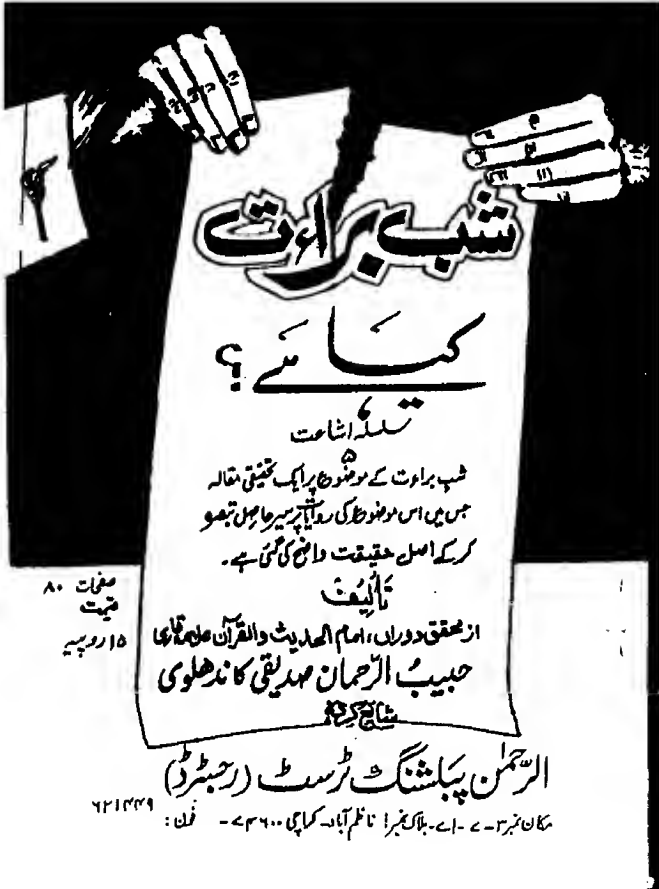 شب براءت
کیا ہے؟
سلسلہ اشاعت
۵
شب براءت کے موضوع پر ایک تحقیقی مقالہ
جس میں اس موضوع کی روایات پر سیر حاصل تبصرہ
کر کے اصل حقیقت واضح کی گئی ہے۔
صفحات ۸۰
قیمت
۱۵ روپیہ
تالیف
از محقق دوراں، امام الحدیث والقرآن علامہ قاری
حبیبُ الرّحمان صدیقی کاندھلوی
شایع کردہ
الرّحمٰن پبلشنگ ٹرسٹ (رجسٹرڈ)
مکان نمبر ۳-۷-اے-بلاک نمبر۱ ناظم آباد-کراچی ۷۴۶۰۰- فون: ۶۲۱۴۴۹